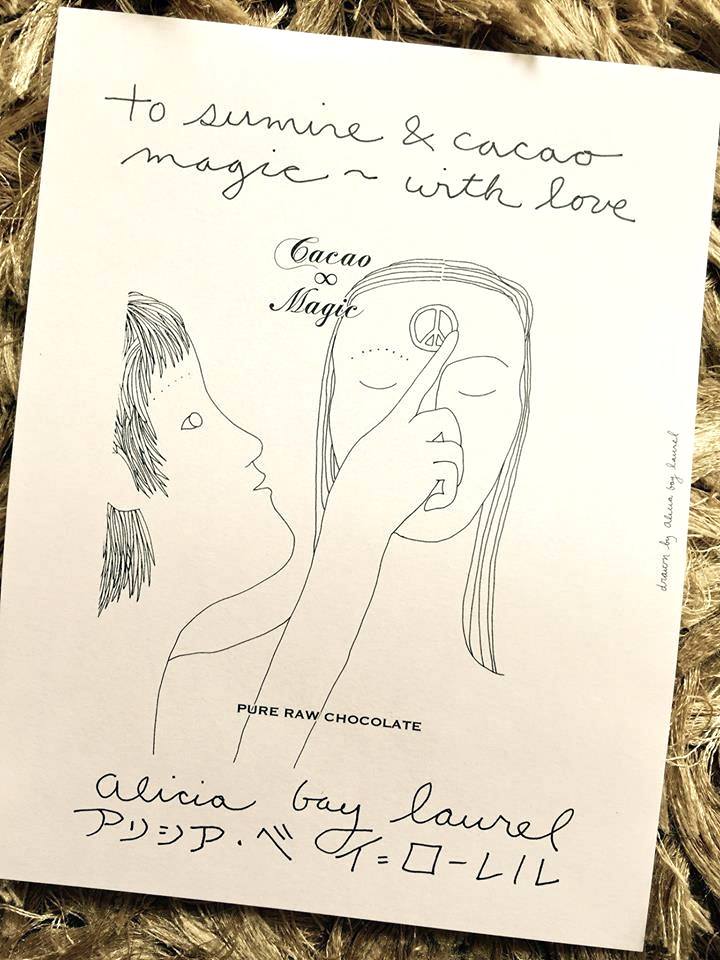 to sumire & cacao
magic ~ with love
Cacao
∞
Magic
drawn by alicia bay laurel
PURE RAW CHOCOLATE
alicia bay laurel
アリシア・ベイ=ローレル